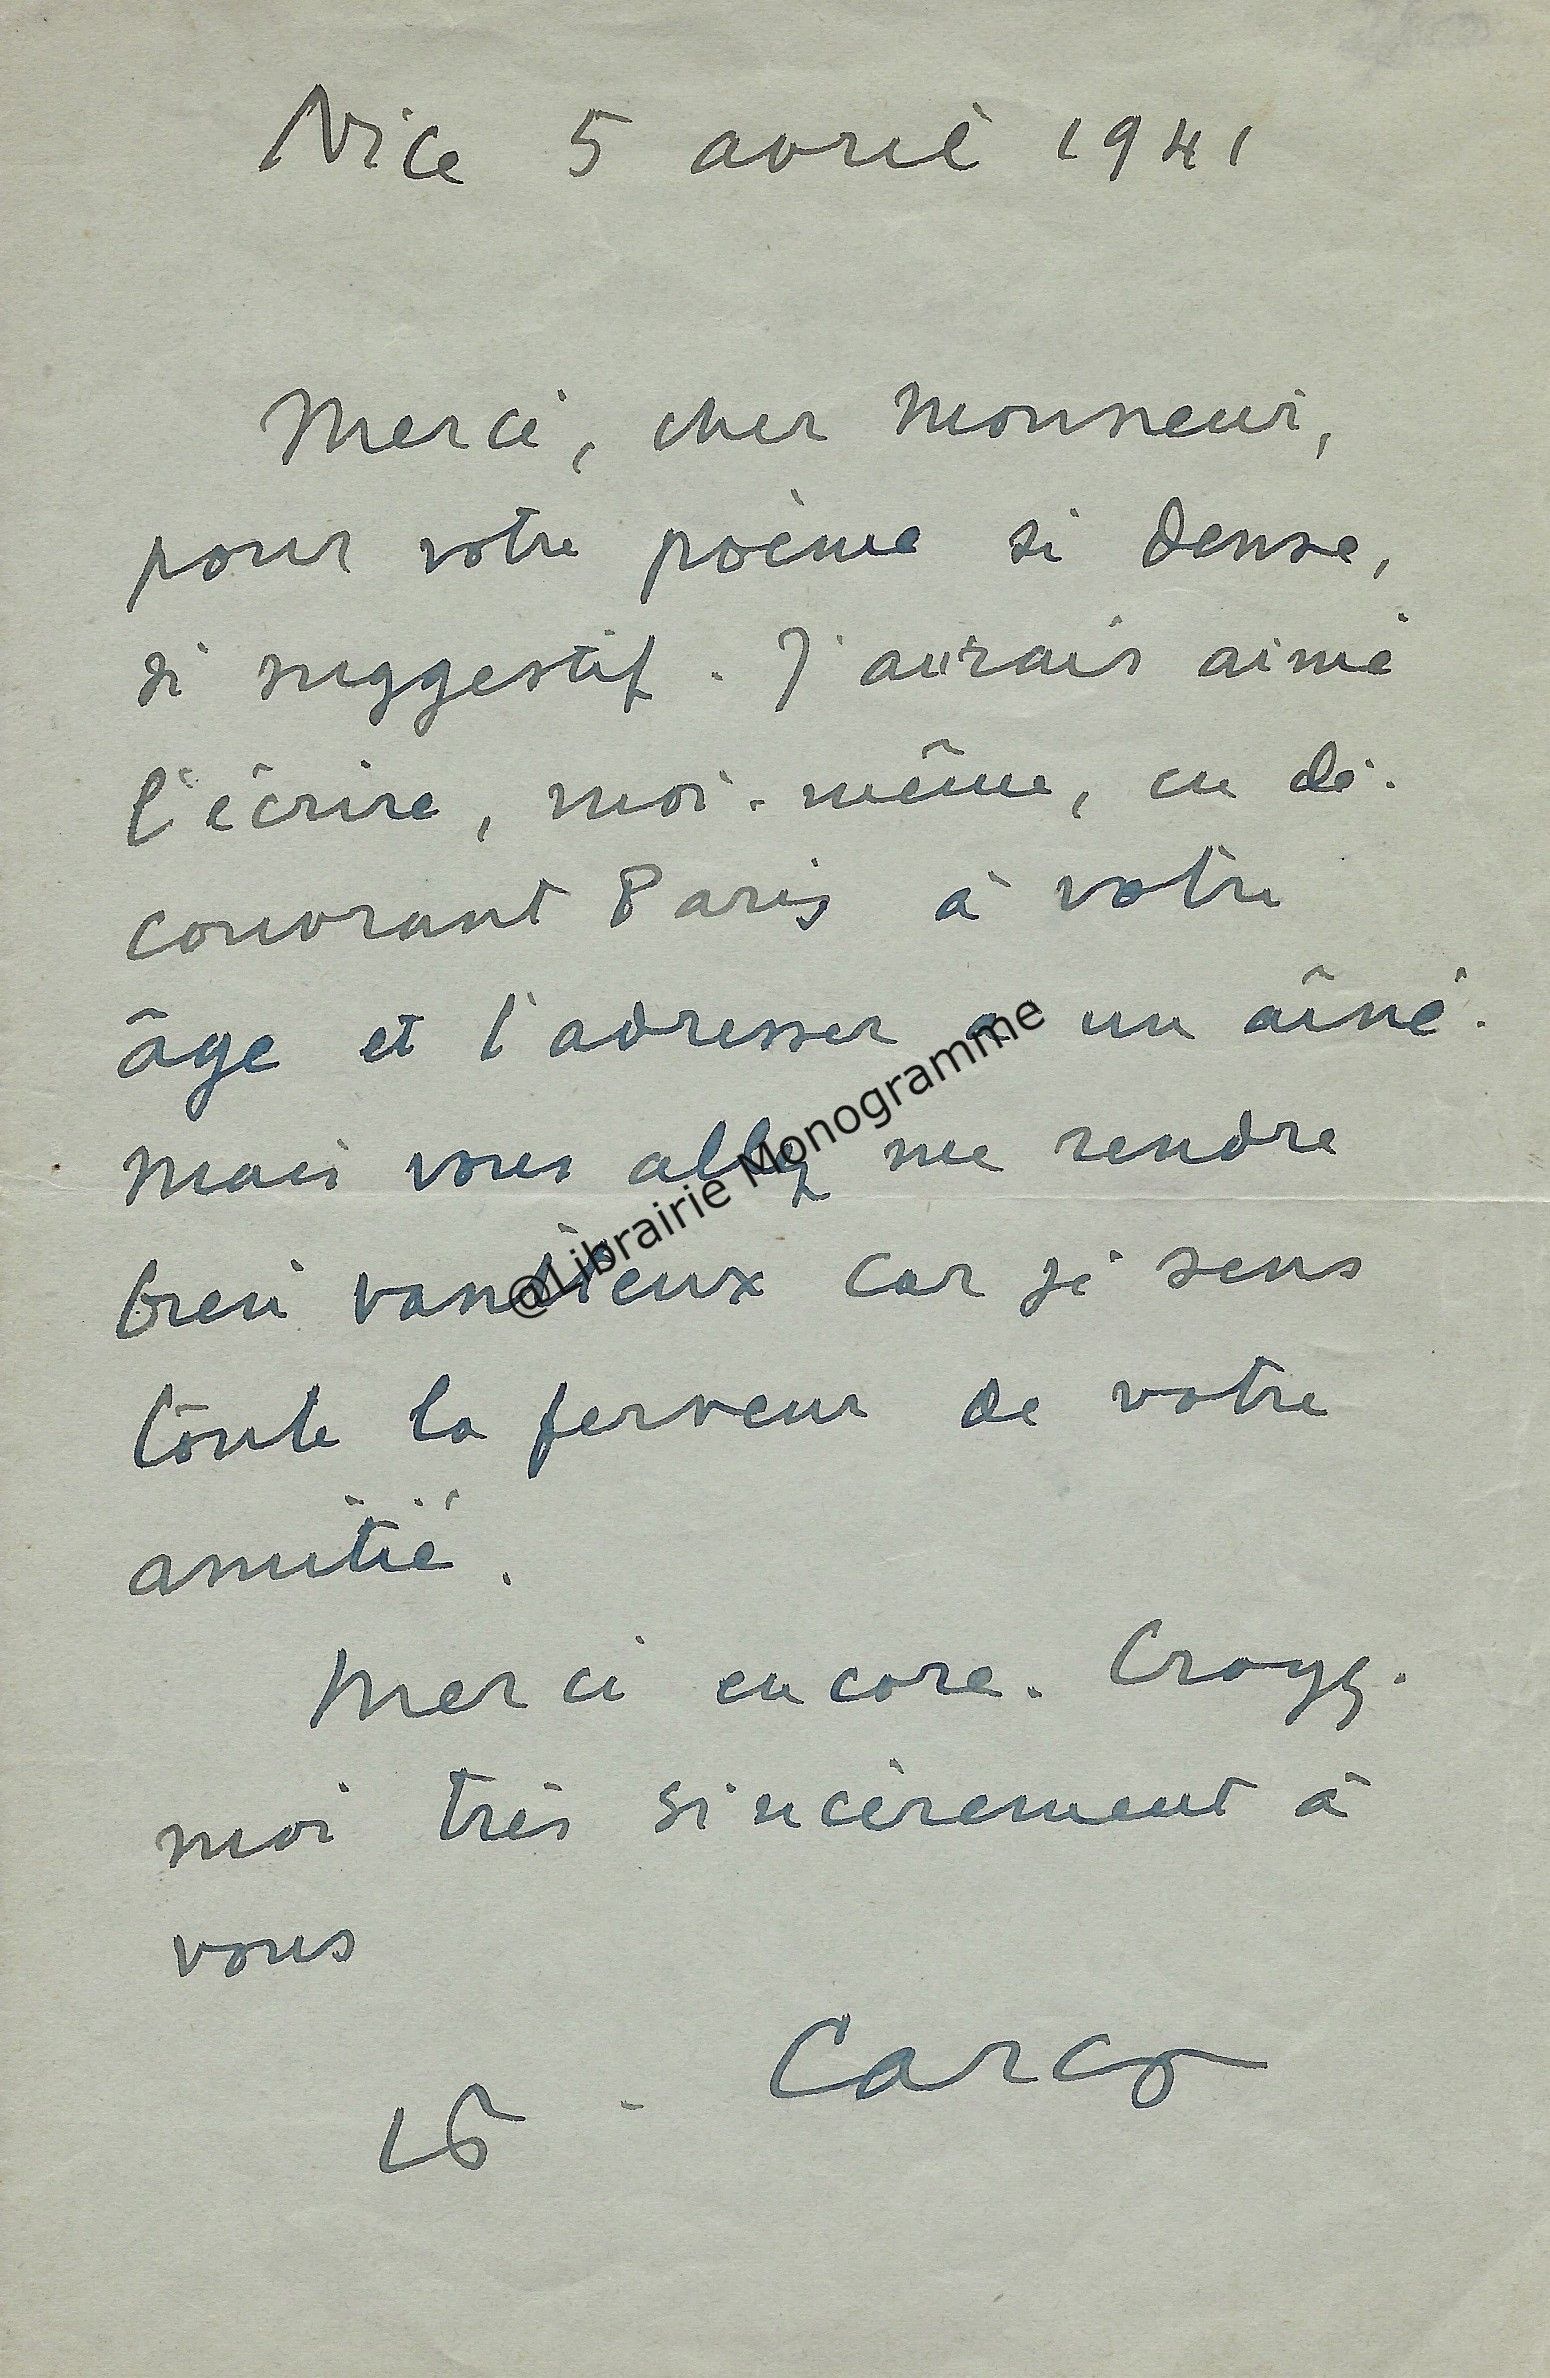 Nice 5 avril 1941
Merci, cher Monsieur,
pour votre poème si dense,
si suggestif. J'aurais aimé
l'écrire, moi-même, en dé-
couvrant Paris à votre
âge et l'adresser à un aîné.
Mais vous allez me rendre
bien vaniteux car je sens
toute la ferveur de votre
amitié.
Merci encore. Croyez-
moi très sincèrement à
vous
Carco
@Librairie Monogramme